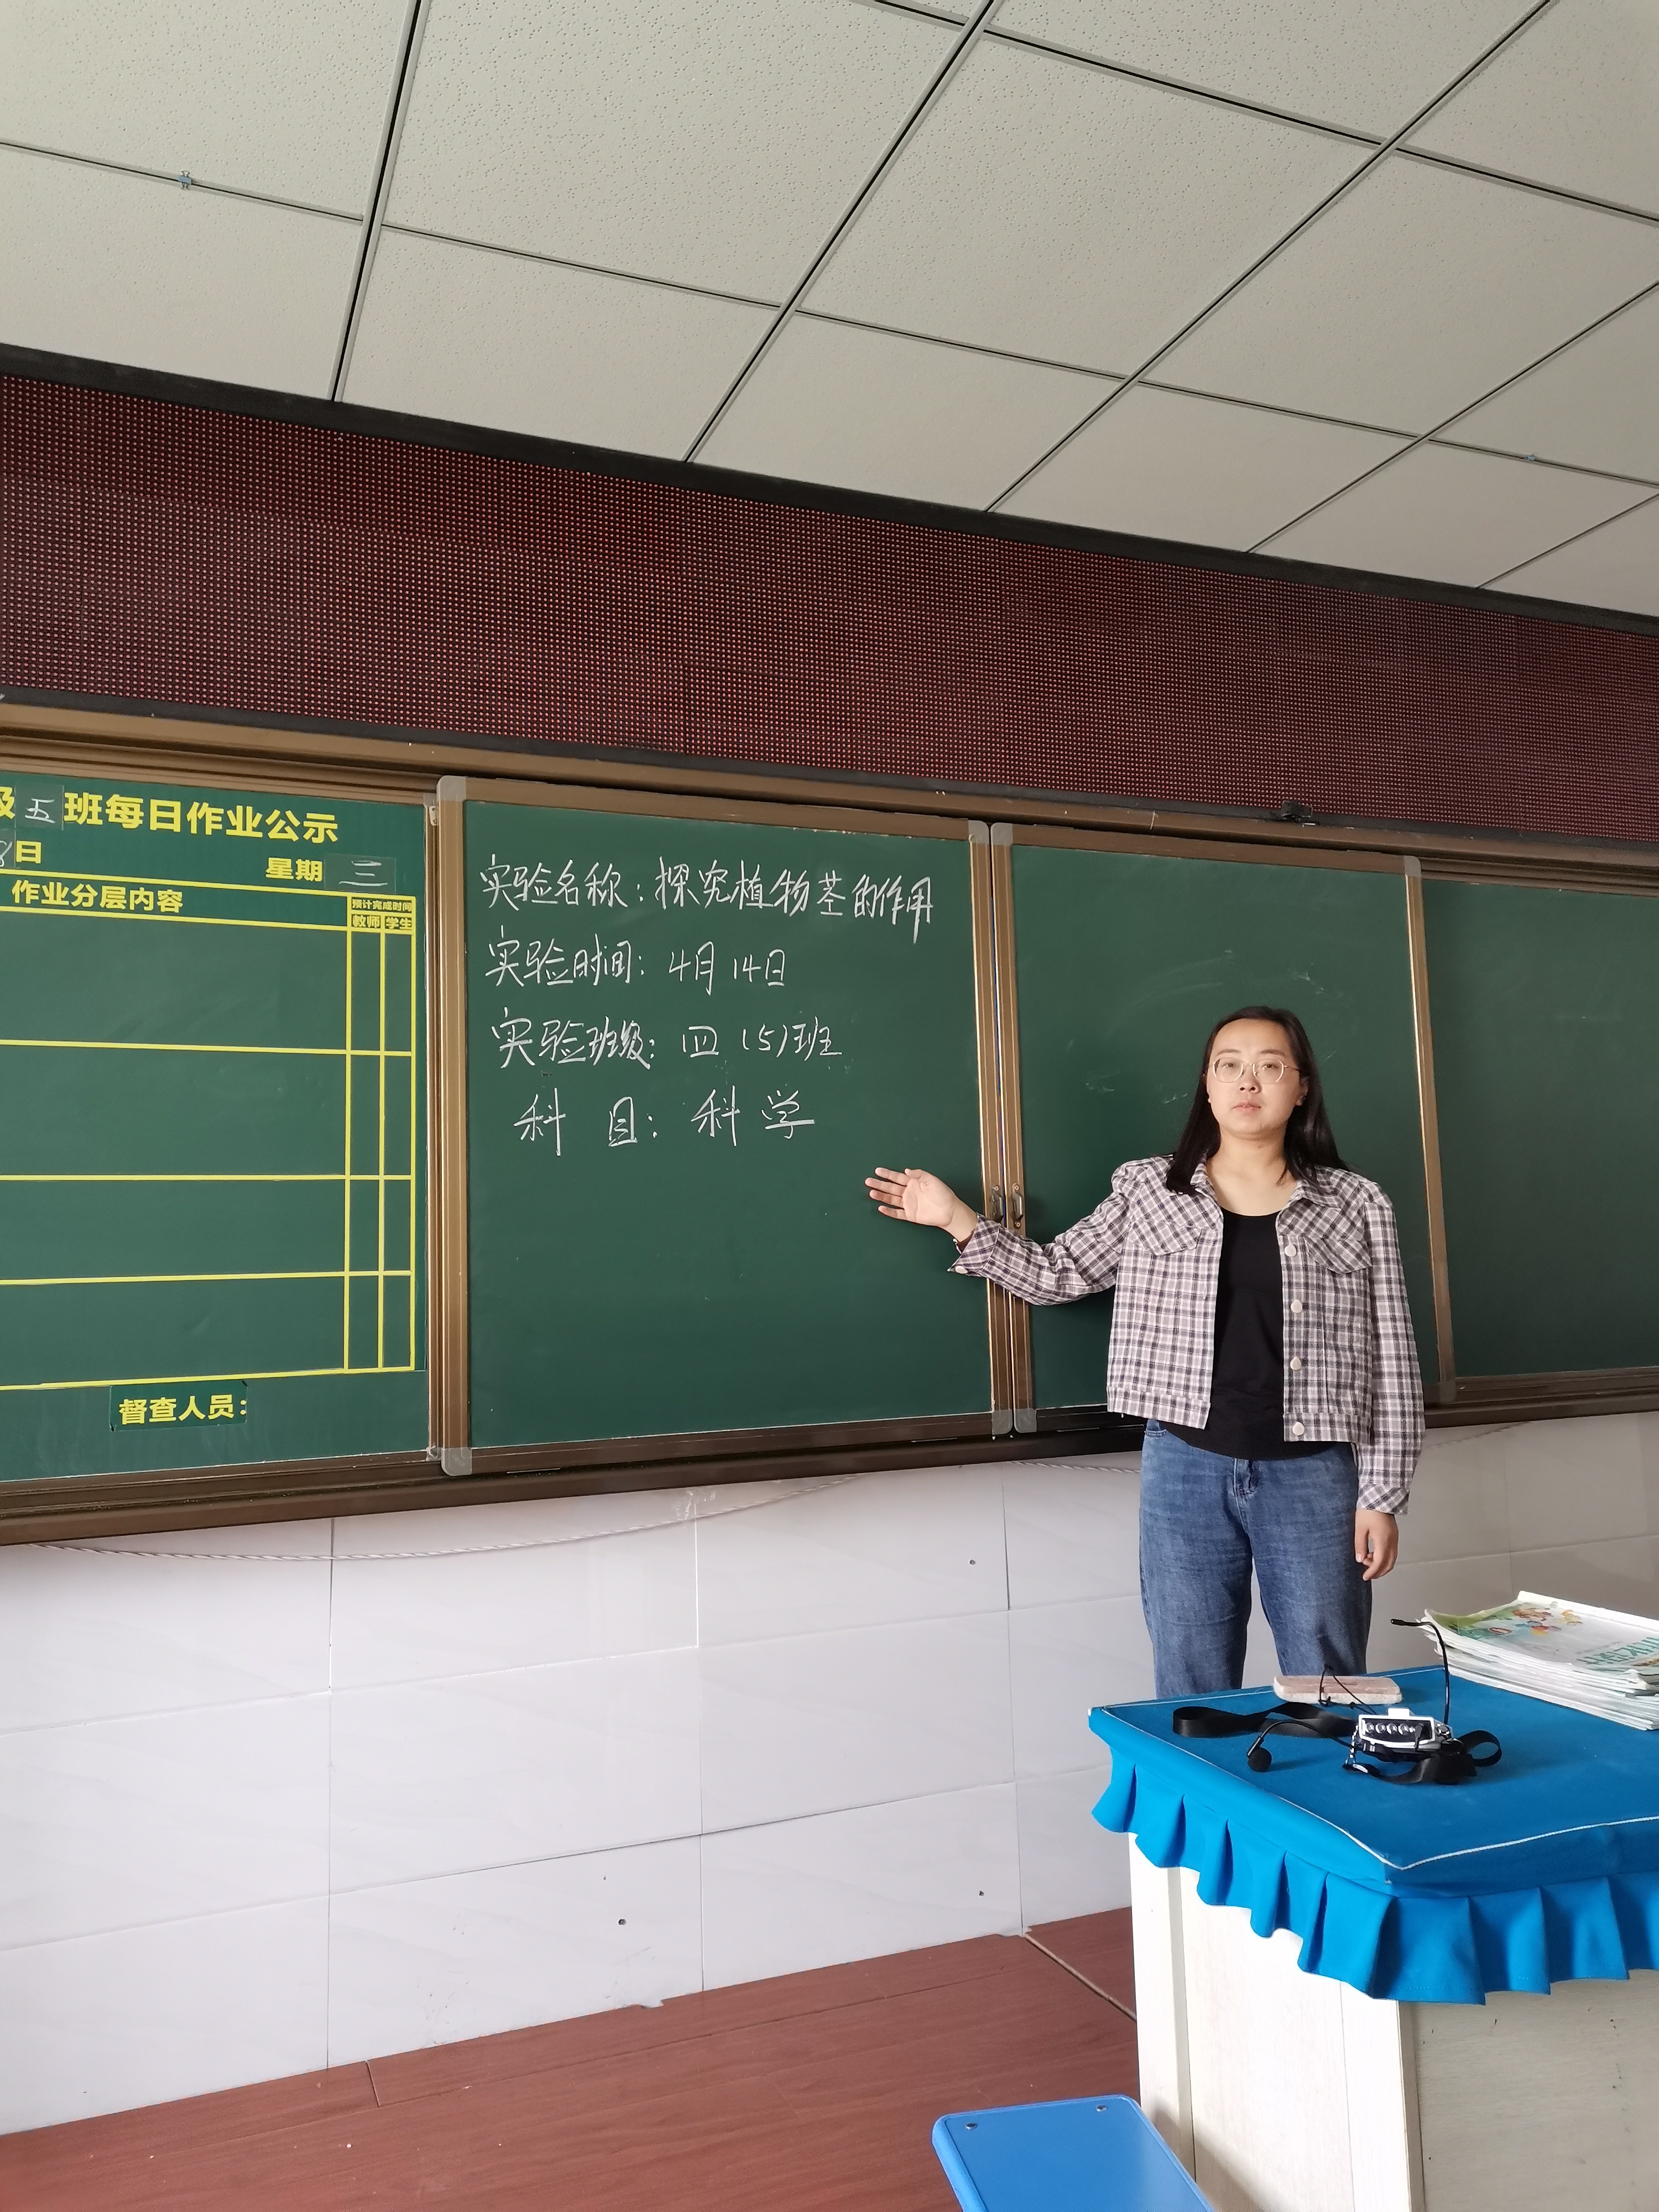 级五班每日作业公示
8日 星期三
作业分层内容
预计完成时间
教师 学生
督查人员:
实验名称:探究植物茎的作用
实验时间:4月14日
实验班级:四(5)班
科目:科学